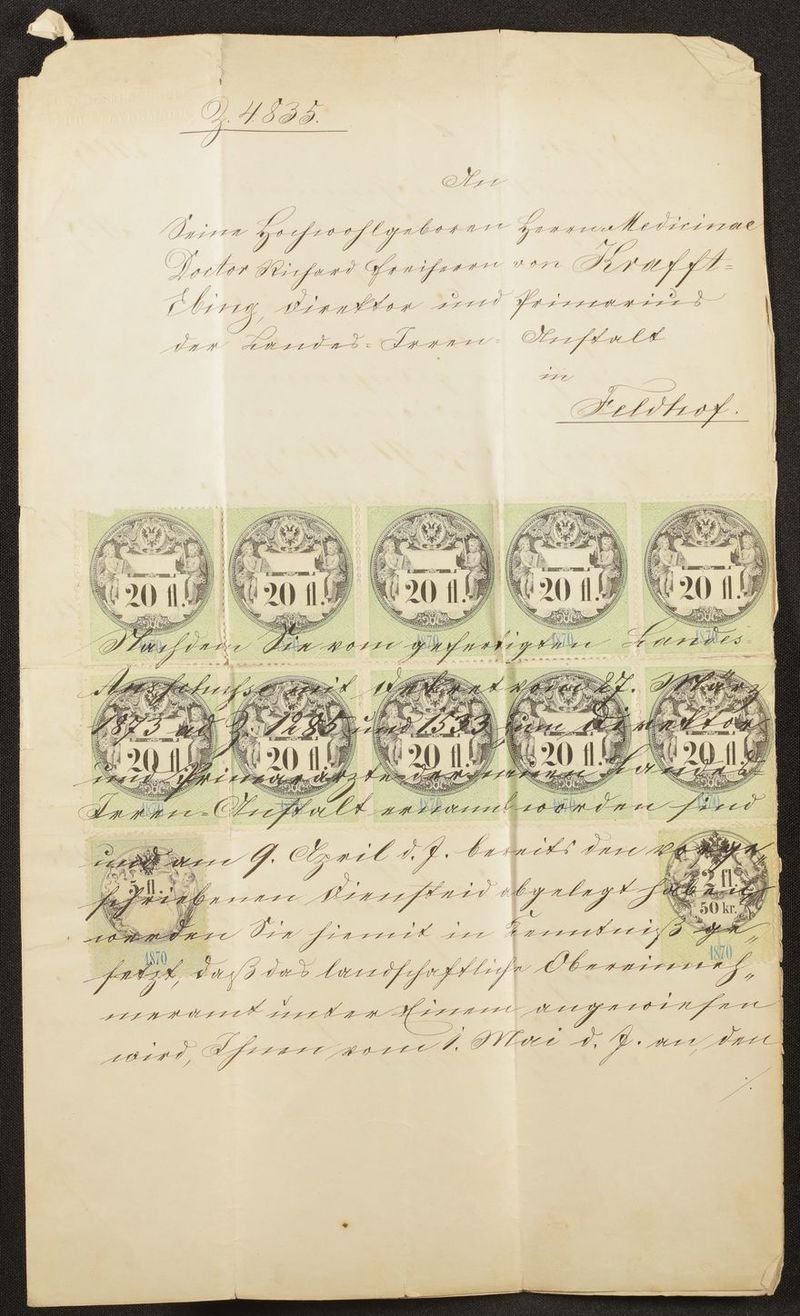 Z. 4835.
An
Seine Hochwohlgeboren Herrn Medicinae
Doctor Richard Freiherrn von Krafft=
Ebing, Direktor und Primarius
der Landes=Irren=Anstalt
in
Feldhof.
20 fl. 20 fl. 20 fl. 20 fl. 20 fl.
1870 1870 1870 1870 1870
Nachdem Sie vom gefertigten Landes=
Ausschusse mit Dekret vom 27. März
1873 ad Z. 1285 und 1533 zum Direktor
20 fl. 20 fl. 20 fl. 20 fl. 20 fl.
und Primararzte der neuen Landes=
Irren=Anstalt ernannt worden sind
1870 1870 1870 1870 1870
und am 9. April d. J. bereits den vorge
5 fl. 2 fl.
schriebenen Diensteid abgelegt haben,
50 kr.
werden Sie hiemit in Kenntniß ge„
1870 1870
setzt, daß das landschaftliche Obereinneh„
meramt unter Einem angewiesen
wird, Ihnen vom 1. Mai d. J. an, den
./.